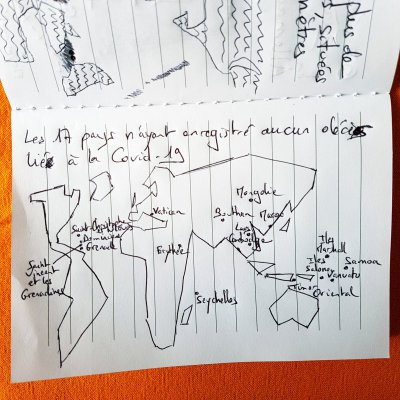 plus de
, situées
mètres
Les 17 pays n'ayant enregistré aucun décès
liés à la Covid-19
Mongolie
Vatican
Bouthan
Macao
Saint Christophe
Dominique
Grenade
Laos
Cambodge
Erythrée
Iles
Marshall
Saint
Vincent
et les
Grenadines
Iles
Salomon
Samoa
Vanuatu
Timor
Oriental
Seychelles